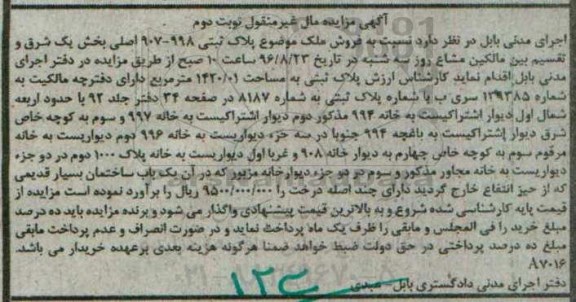 آگهی مزایده مال غیرمنقول نوبت دوم
اجرای مدنی بابل در نظر دارد نسبت به فروش ملک موضوع پلاک ثبتی ۹۹۸-۹۰۷ اصلی بخش یک شرق و
تقسیم بین مالکین مشاع روز سه شنبه در تاریخ ۹۶/۸/۲۳ ساعت ۱۰ صبح از طریق مزایده در دفتر اجرای
مدنی بابل اقدام نماید کارشناس ارزش پلاک ثبتی به مساحت ۱۴۲۰/۰۱ مترمربع دارای دفترچه مالکیت به
شماره ۱۲۹۳۸۵ سری ب با شماره پلاک ثبتی به شماره ۸۱۸۷ در صفحه ۳۴ دفتر جلد ۹۲ با حدود اربعه
شمال اول دیوار اشتراکیست به خانه ۹۹۴ مذکور دوم دیوار اشتراکیست به خانه ۹۹۷ و سوم به کوچه خاص
شرق دیوار اشتراکیست به باغچه ۹۹۴ جنوبا در سه جزء دیواریست به خانه ۹۹۶ دوم دیواریست به خانه
مرقوم سوم به کوچه خاص چهارم به دیوار خانه ۹۰۸ و غربا اول دیواریست به خانه پلاک ۱۰۰۰ دوم در دو جزء
دیواریست به خانه مجاور مذکور و سوم در دو جزء دیوارخانه مزبور که در آن یک باب ساختمان بسیار قدیمی
که از حیز انتفاع خارج گردید دارای چند اصله درخت را ۹۵۰۰/۰۰۰/۰۰۰ ریال را برآورد نموده است مزایده از
قیمت پایه کارشناسی شده شروع و به بالاترین قیمت پیشنهادی واگذار می شود و برنده مزایده باید ده درصد
مبلغ خرید را فی المجلس و مابقی را ظرف یک ماه پرداخت نماید و در صورت انصراف و عدم پرداخت مابقی
مبلغ ده درصد پرداختی در حق دولت ضبط خواهد ضمنا هرگونه هزینه بعدی برعهده خریدار می باشد.
۸۷۰۱۶
دفتر اجرای مدنی دادگستری بابل -